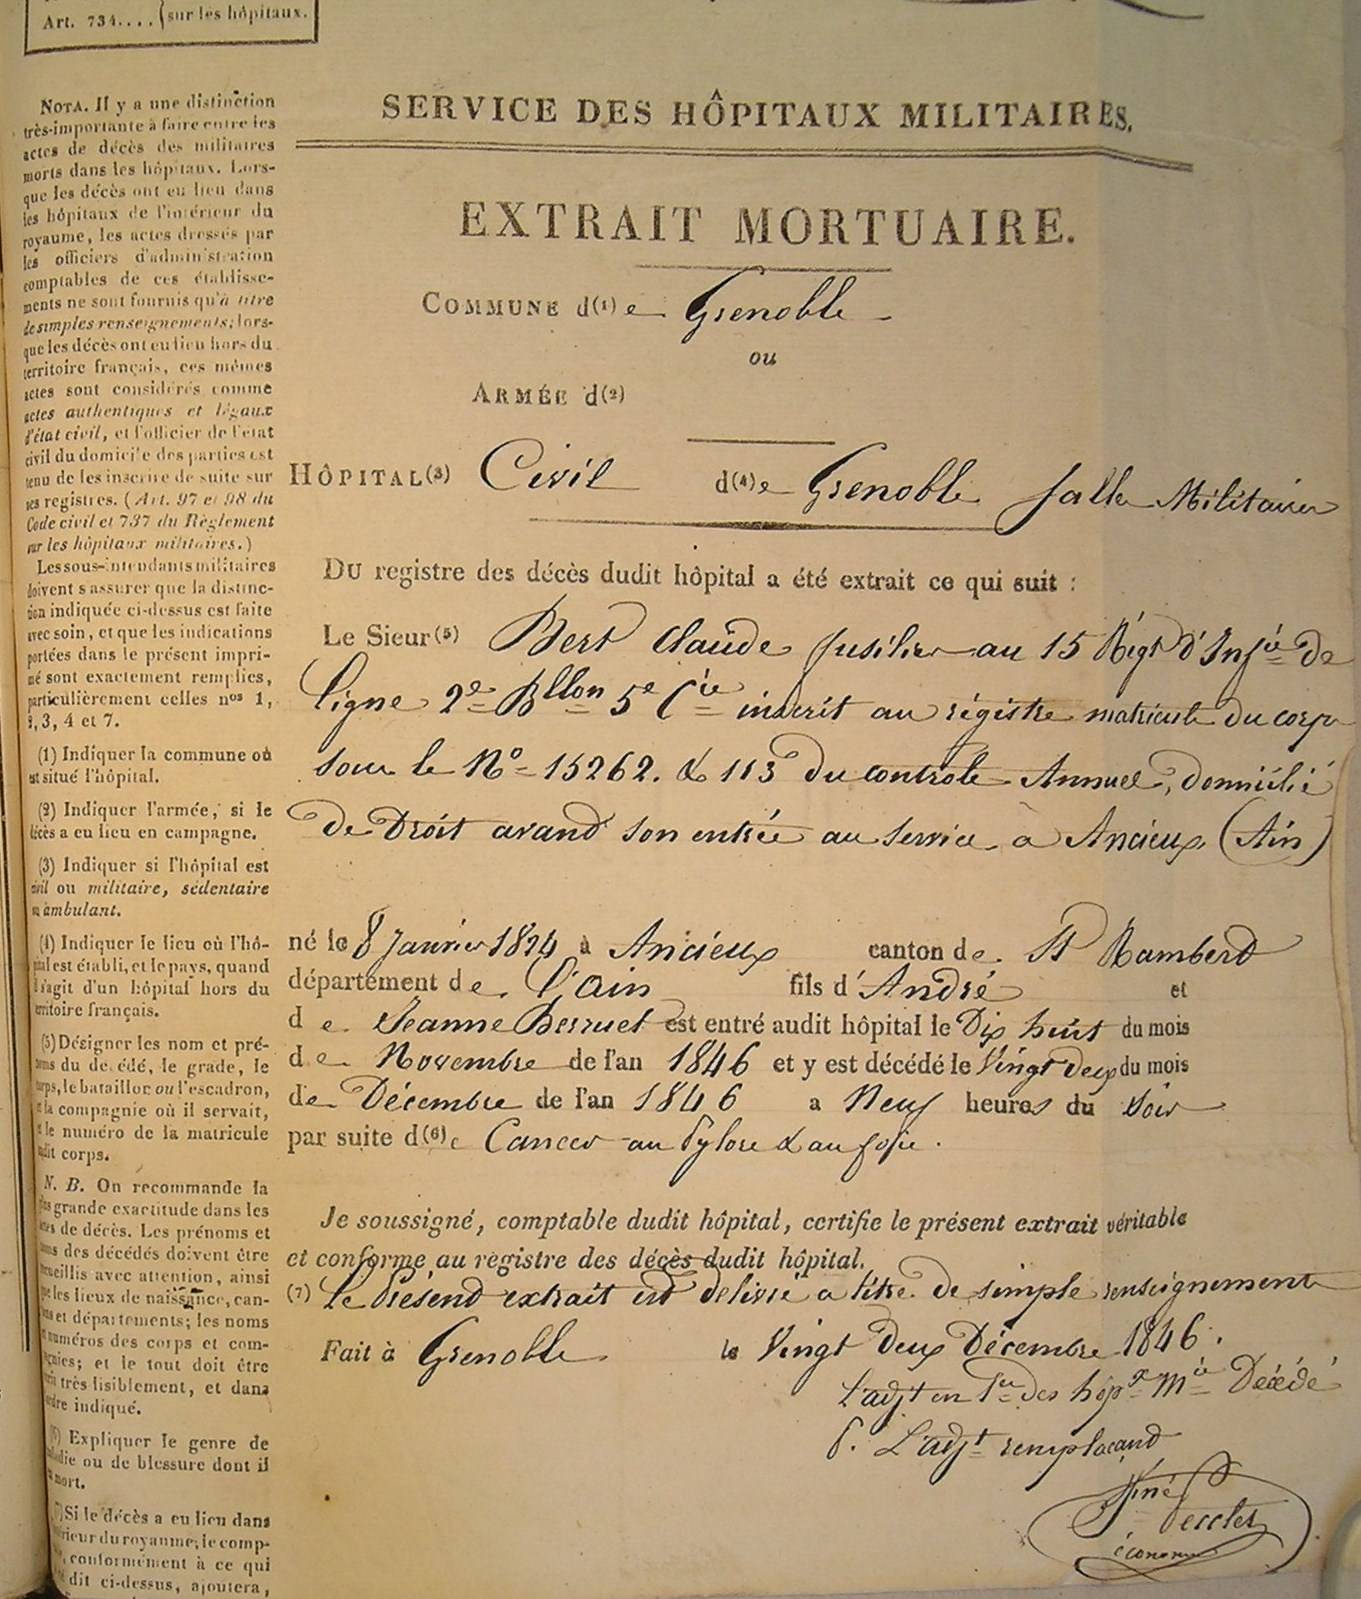 Art. 734.... sur les hôpitaux.
SERVICE DES HÔPITAUX MILITAIRES.
EXTRAIT MORTUAIRE.
COMMUNE d(1)e Grenoble
ou
ARMÉE d(2)
HÔPITAL(3) Civil d(4)e Grenoble Salle Militaire
DU registre des décès dudit hôpital a été extrait ce qui suit :
Le Sieur(5) Bert Claude fusilier au 15 Régt d'Infie de
Ligne 2e Bllon 5e Cie inscrit au régistre matricule du corps
sous le No 15262. & 113 du controle Annuel, domicilié
de Droit avand son entrée au service à Ancieux (Ain)
né le 8 Janvier 1824 à Ancieux canton de St Rambert
département de l'Ain fils d'André et
de Jeanne Berruet est entré audit hôpital le Dix huit du mois
de Novembre de l'an 1846 et y est décédé le Vingt deux du mois
de Décembre de l'an 1846 a Neuf heures du Soir
par suite d(6)e Cancer au Pylore & au foie.
Je soussigné, comptable dudit hôpital, certifie le présent extrait véritable
et conforme au registre des décès dudit hôpital.
(7) Le Présend extrait est délivré a titre de simple renseignement
Fait à Grenoble le Vingt deux Décembre 1846.
L'adjt en 1er des hôpx Mre Décédé
P. L'adjt remplacand
Signé
économe
NOTA. Il y a une distinction
très-importante à faire entre les
actes de décès des militaires
morts dans les hôpitaux. Lors-
que les décès ont eu lieu dans
les hôpitaux de l'intérieur du
royaume, les actes dressés par
les officiers d'administration
comptables de ces établisse-
ments ne sont fournis qu'à titre
de simples renseignements; lors-
que les décès ont eu lieu hors du
territoire français, ces mêmes
actes sont considérés comme
actes authentiques et légaux
d'état civil, et l'officier de l'état
civil du domicile des parties est
tenu de les inscrire de suite sur
ses registres. (Art. 97 et 98 du
Code civil et 737 du Règlement
sur les hôpitaux militaires.)
Les sous-intendants militaires
doivent s'assurer que la distinc-
tion indiquée ci-dessus est faite
avec soin, et que les indications
portées dans le présent impri-
mé sont exactement remplies,
particulièrement celles nos 1,
2, 3, 4 et 7.
(1) Indiquer la commune où
est situé l'hôpital.
(2) Indiquer l'armée, si le
décès a eu lieu en campagne.
(3) Indiquer si l'hôpital est
civil ou militaire, sédentaire
ou ambulant.
(4) Indiquer le lieu où l'hô-
pital est établi, et le pays, quand
il s'agit d'un hôpital hors du
territoire français.
(5) Désigner les nom et pré-
noms du décédé, le grade, le
corps, le bataillon ou l'escadron,
et la compagnie où il servait,
et le numéro de la matricule
dudit corps.
N. B. On recommande la
plus grande exactitude dans les
actes de décès. Les prénoms et
noms des décédés doivent être
recueillis avec attention, ainsi
que les lieux de naissance, can-
tons et départements; les noms
et numéros des corps et com-
pagnies; et le tout doit être
écrit très lisiblement, et dans
l'ordre indiqué.
(6) Expliquer le genre de
maladie ou de blessure dont il
est mort.
(7) Si le décès a eu lieu dans
l'intérieur du royaume, le comp-
table, conformément à ce qui
est dit ci-dessus, ajoutera,